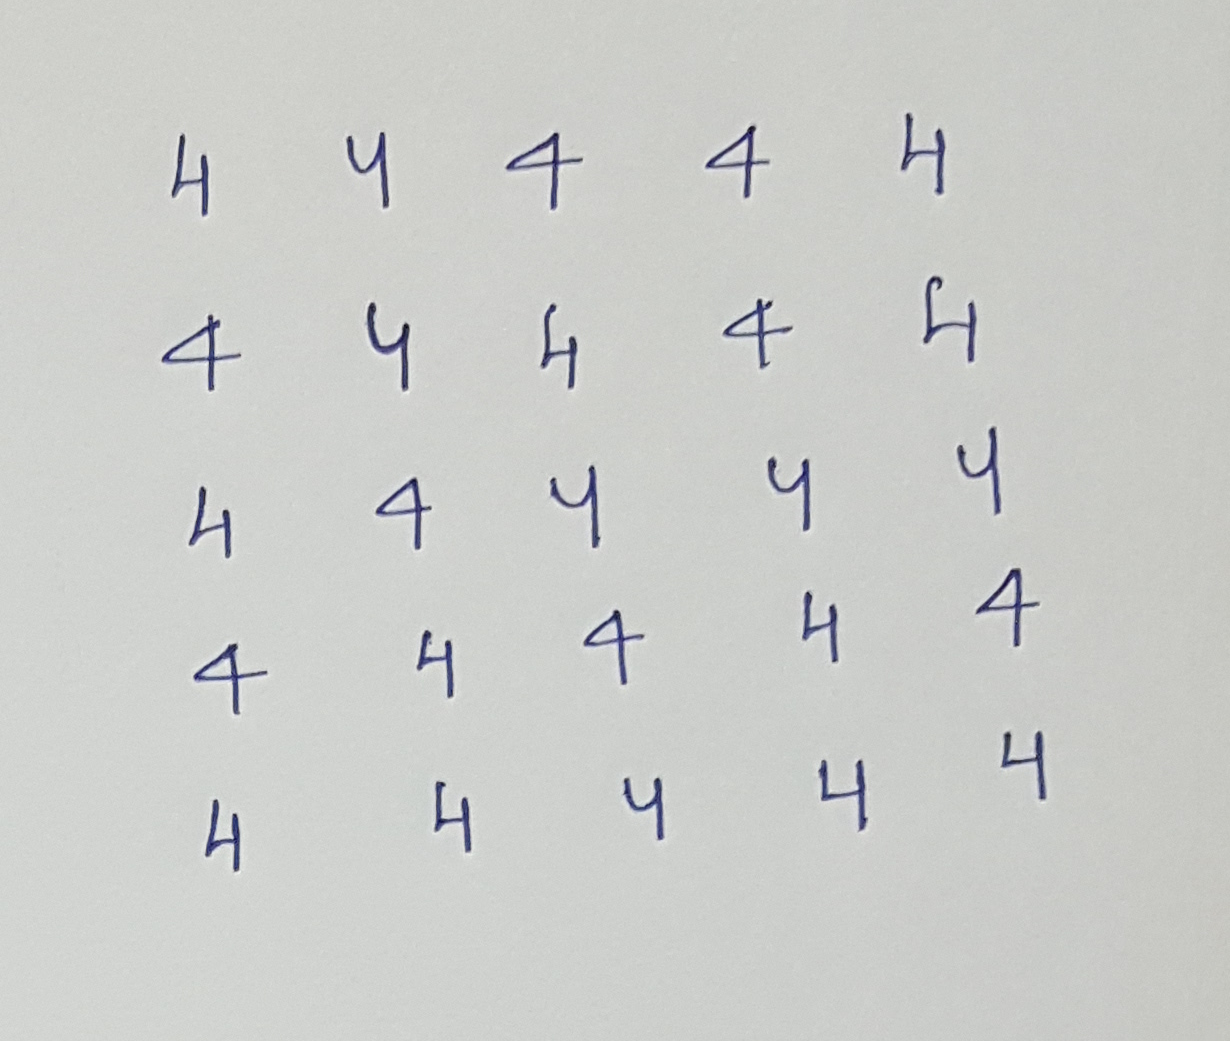 4 4 4 4 4
4 4 4 4 4
4 4 4 4 4
4 4 4 4 4
4 4 4 4 4